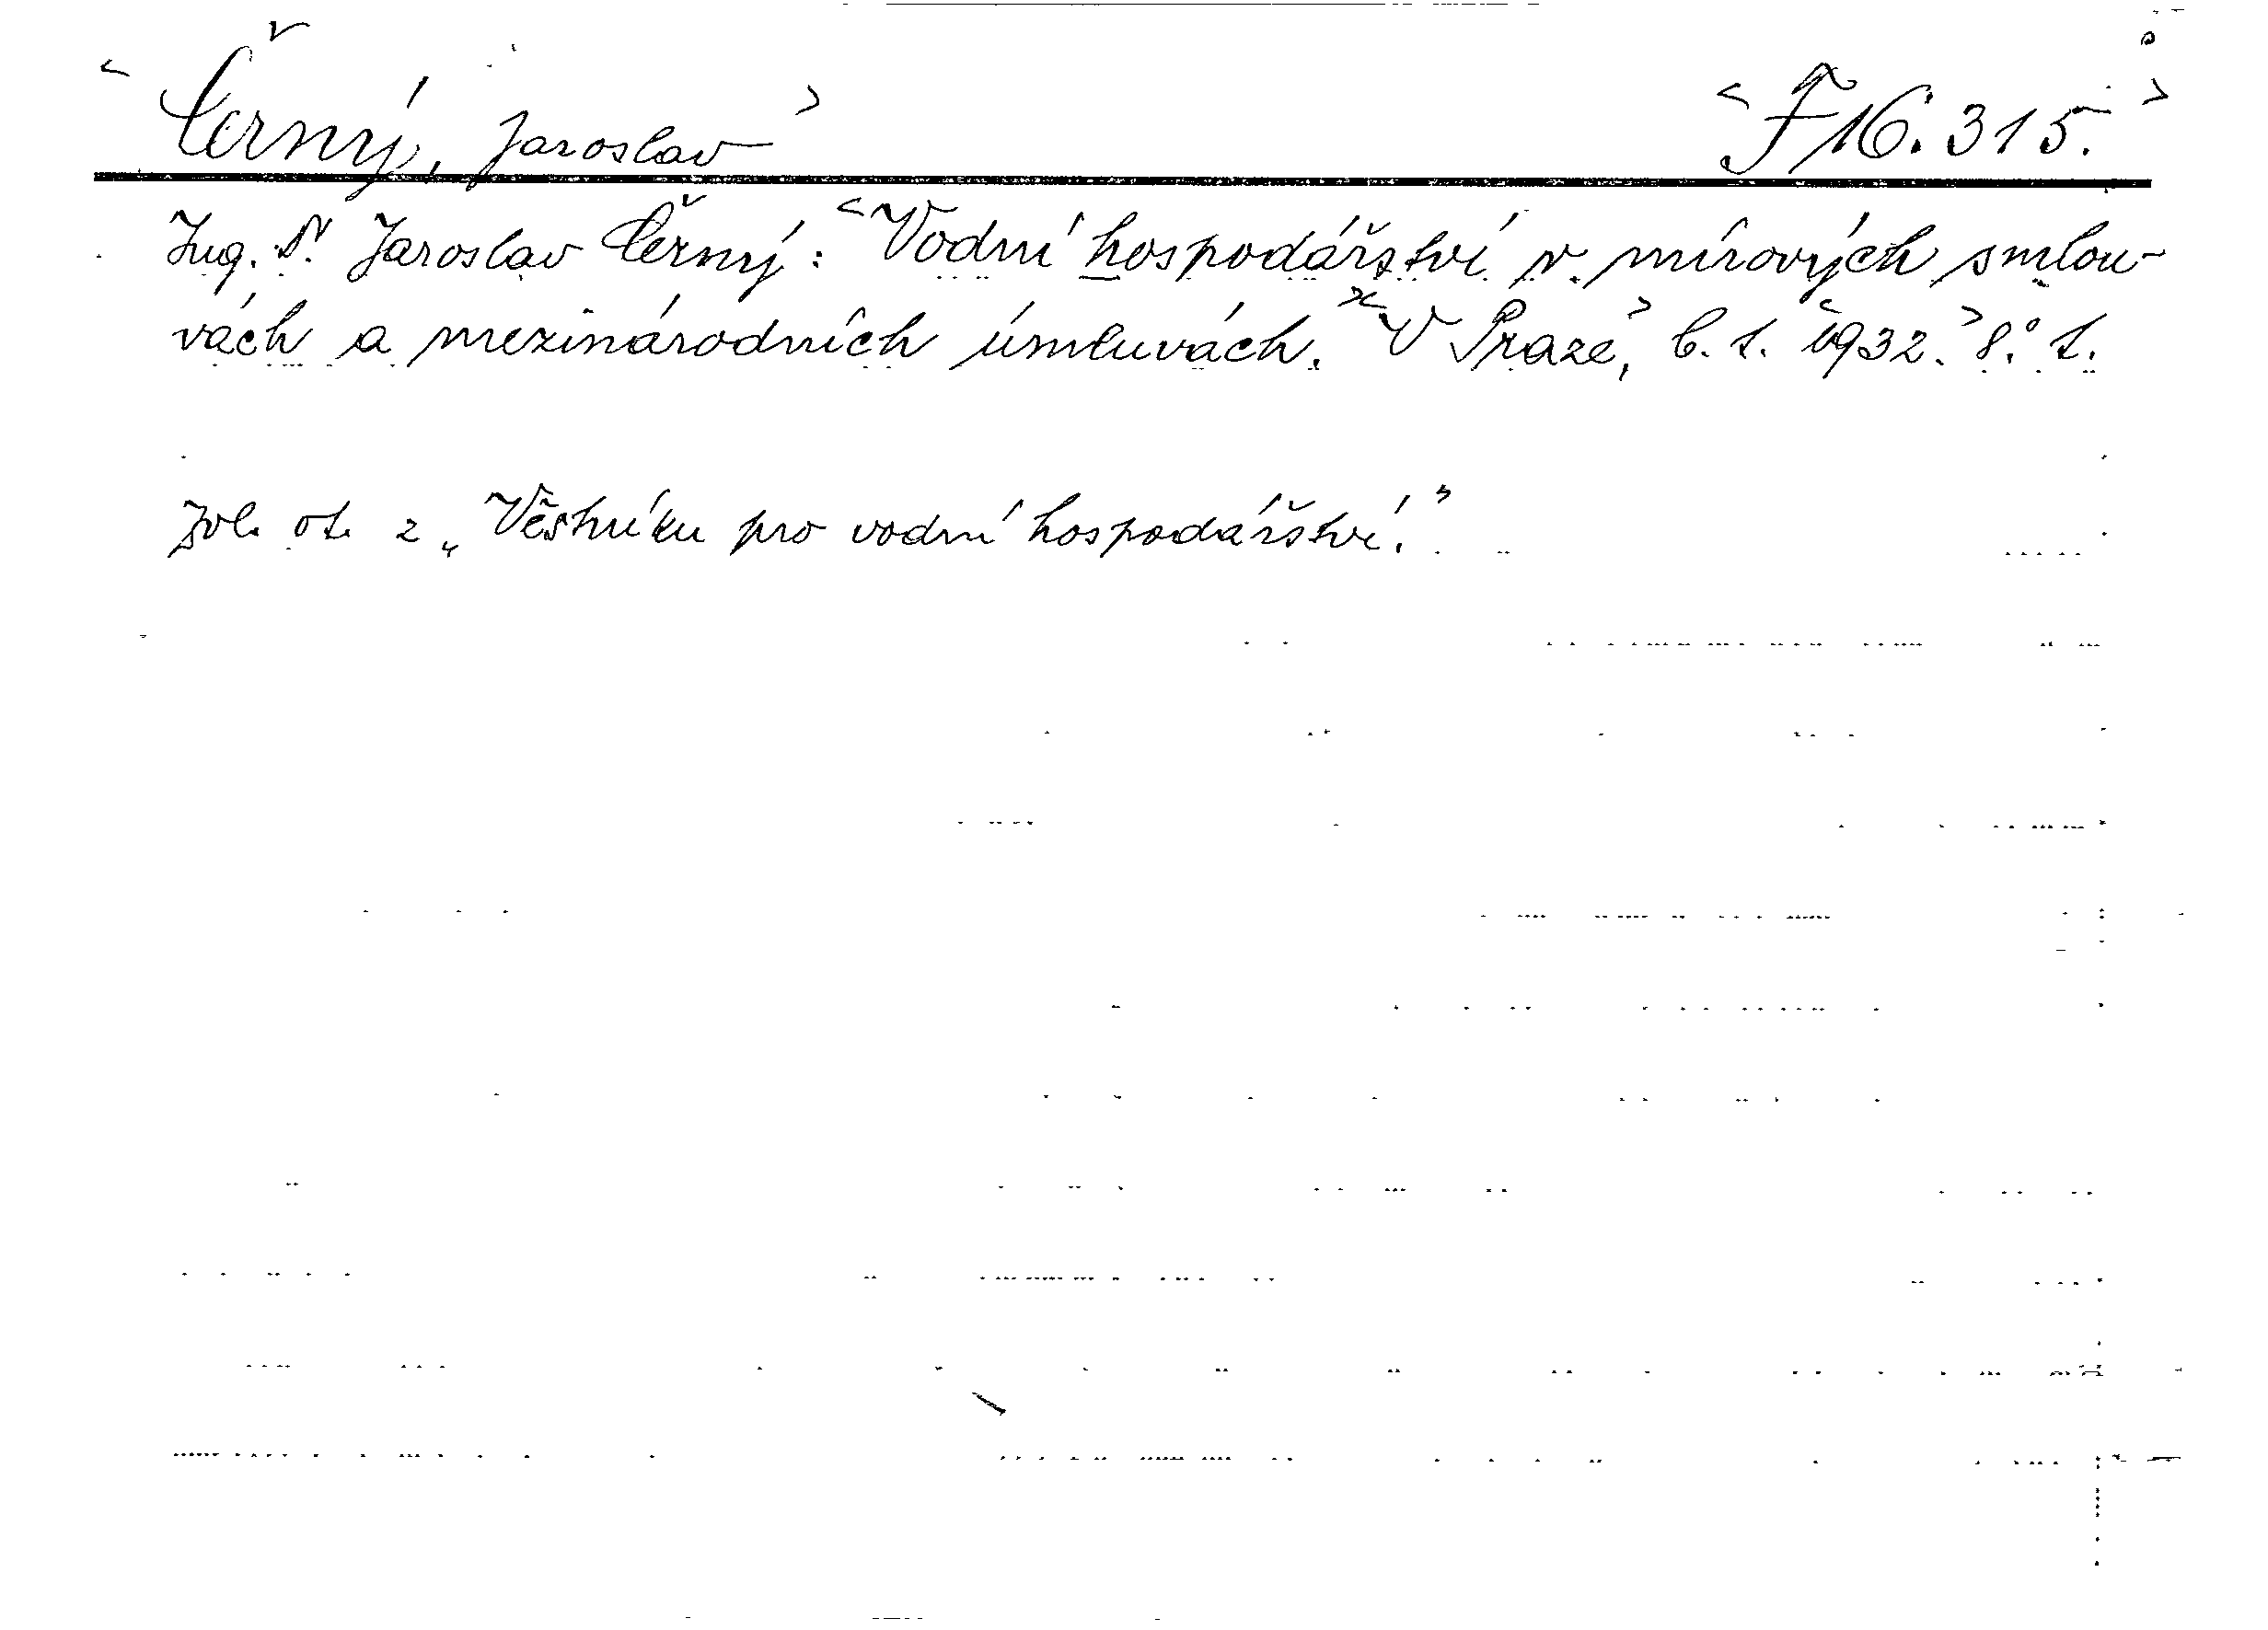 Černý, Jaroslav F 16.315.
Ing. Dr. Jaroslav Černý: Vodní hospodářství v mírových smlou-
vách a mezinárodních úmluvách. V Praze, b. t. 1932. 8.° 1.
zvl. ot. z „Věstníku pro vodní hospodářství.“